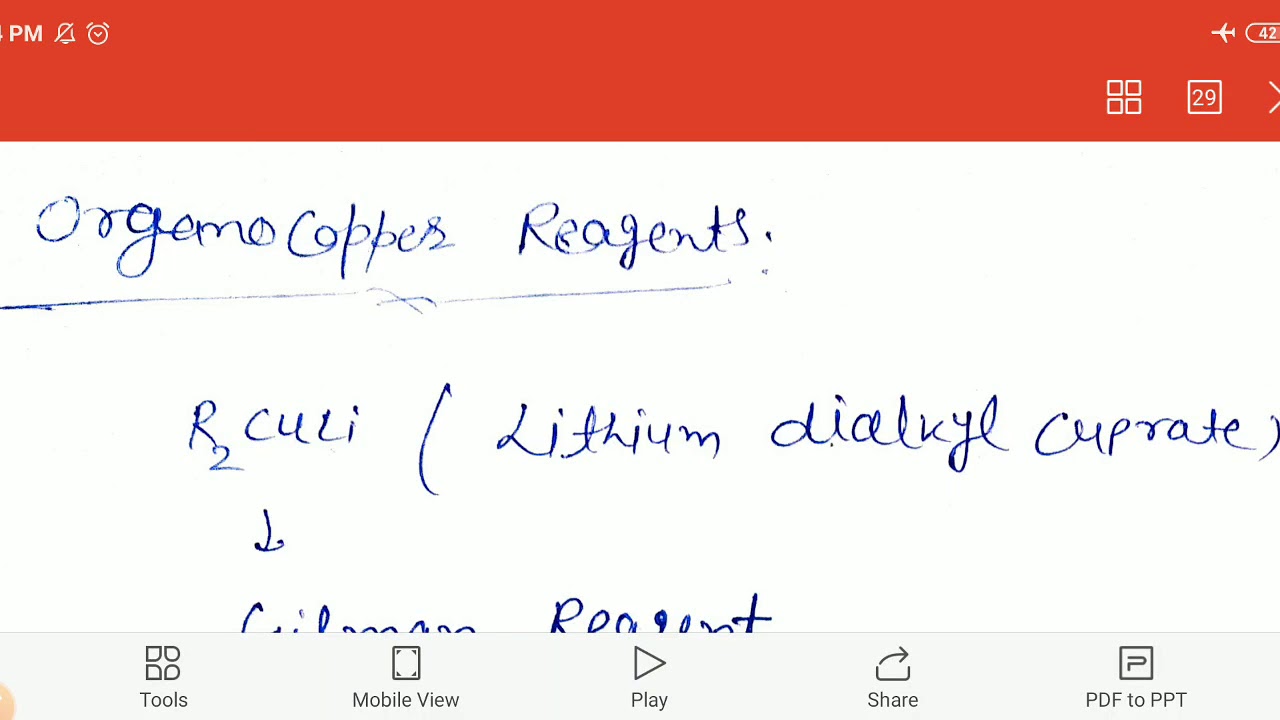 PM
42
29
Organocopper Reagents.
R2CuLi ( Lithium dialkyl cuprate)
↓
Gilman Reagent
Tools Mobile View Play Share PDF to PPT